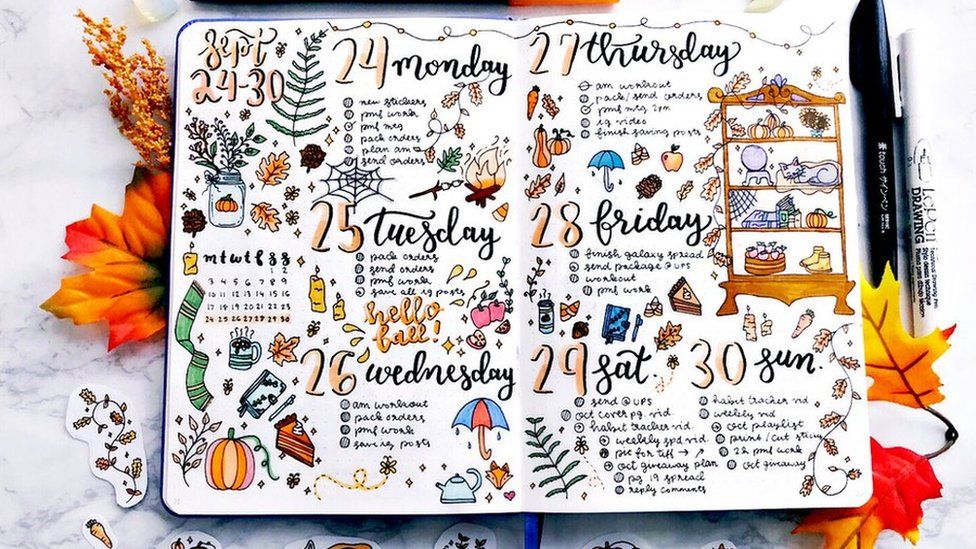 Sept
24-30
m t w t f s s
1 2
3 4 5 6 7 8 9
10 11 12 13 14 15 16
17 18 19 20 21 22 23
24 25 26 27 28 29 30
24 monday
new stickers
pmf work
pmf mtg
pack orders
plan am
send orders
25 tuesday
pack orders
send orders
pmf work
save all ig posts
hello
fall!
26 wednesday
am workout
pack orders
pmf work
save ig posts
27 thursday
am workout
pack/send orders
pmf mtg 2pm
ig video
finish saving posts
28 friday
finish galaxy spread
send package @ UPS
workout
pmf work
29 sat.
send @ UPS
oct cover pg. vid.
habit tracker vid.
weekly spd vid.
pic for tiff → ↗
oct giveaway plan
pg 19 spread
reply comments
30 sun.
habit tracker vid
weekly vid
oct playlist
print/cut sticky
2h pmf work
oct giveaway
touch サインペン
DRAWING